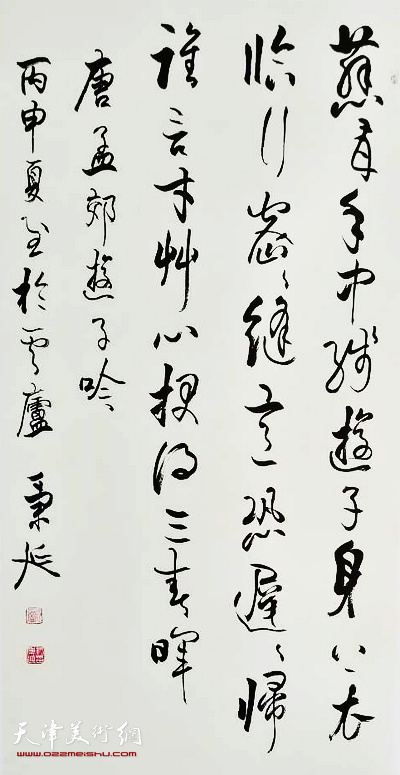 慈母手中线游子身上衣
临行密密缝意恐迟迟归
谁言寸草心报得三春晖
唐孟郊游子吟
丙申夏至於云庐 秉延
天津美术網
www.022meishu.com